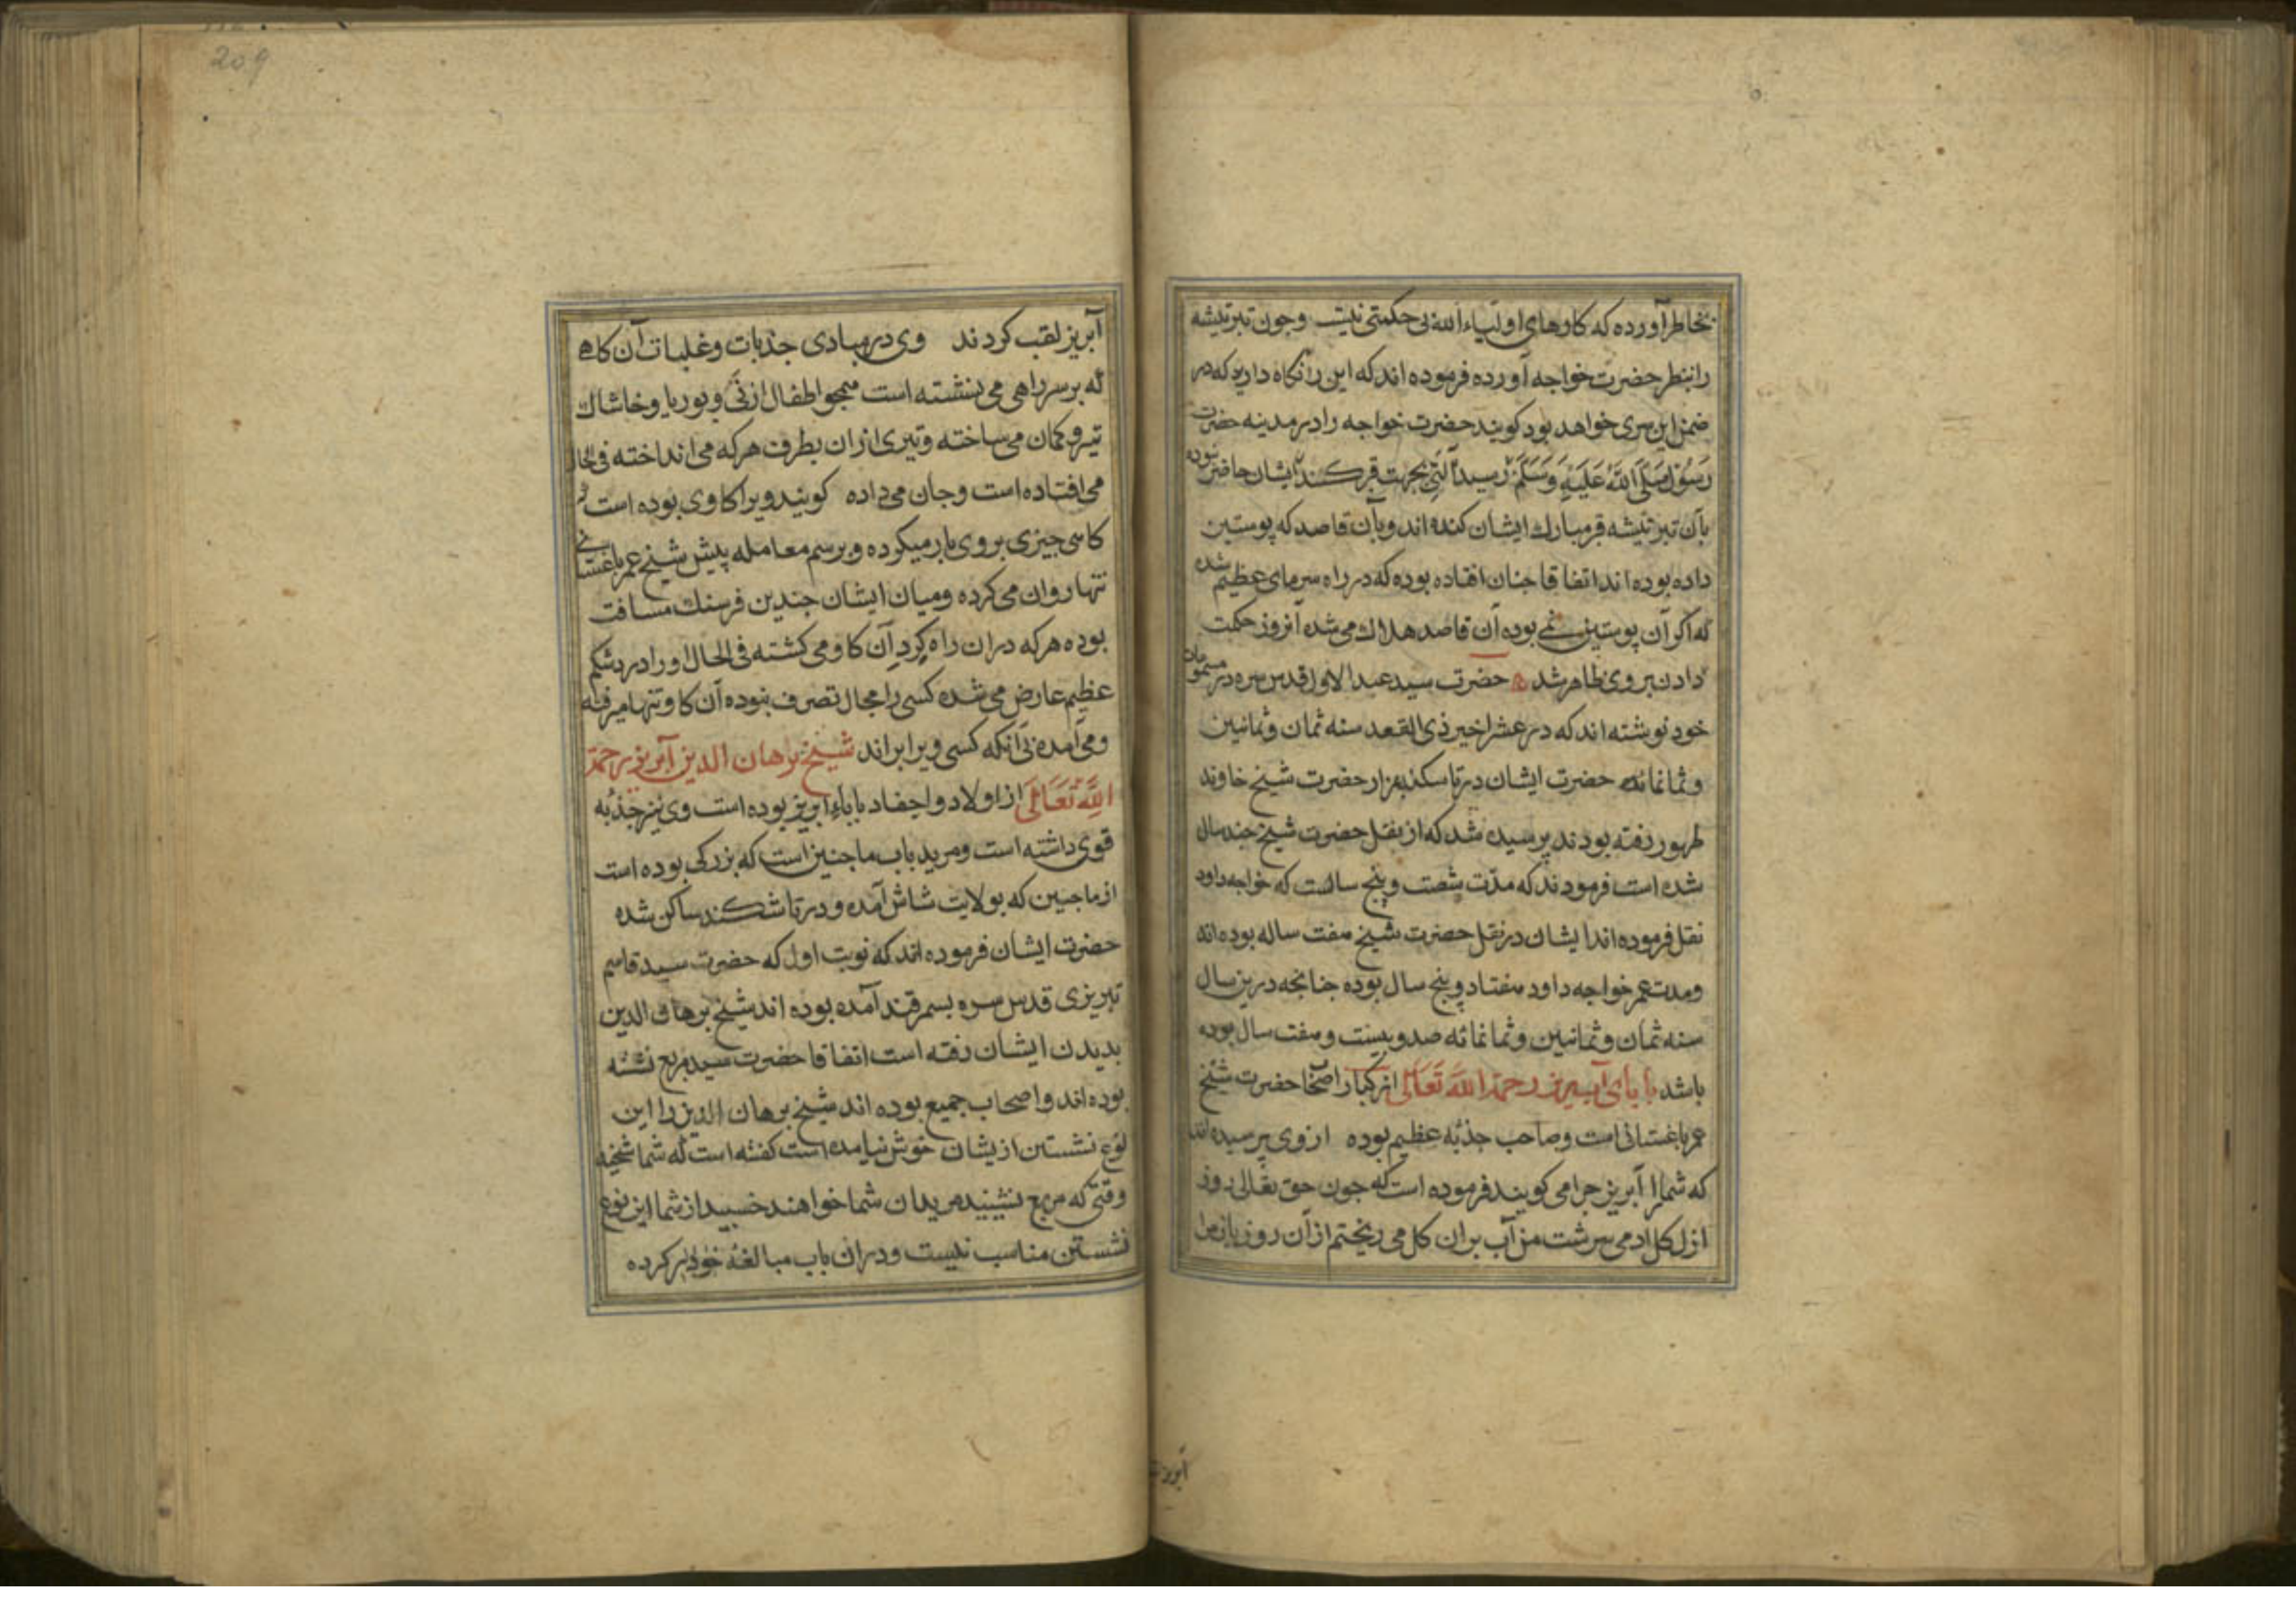 بخاطر آورده که کارهای اولیاء الله بی حکمتی نیست وچون تبرتیشه
را بنظر حضرت خواجه آورده فرموده اند که این را نکاه دارید که در
ضمن این سری خواهد بود کویند حضرت خواجه را در مدینه حضرت
رسول صلی الله علیه وسلم رسید آلتی بجهت قبر کندن ایشان حاضر نبوده
بآن تبرتیشه قبر مبارک ایشان کنده اند وبآن قاصد که پوستین
داده بوده اند اتفاقا چنان افتاده بوده که در راه سرمای عظیم شده
که اکر آن پوستین نمی بوده آن قاصد هلاک می شده آنروز حکمت
دادن بروی ظاهر شد حضرت سید عبد الاول قدس سره در مسموعات
خود نوشته اند که در عشر اخیر ذی القعد سنه ثمان وثمانین
وثمانمائه حضرت ایشان در تاسکند بمزار حضرت شیخ خاوند
طهور رفته بودند پرسیده شد که از نقل حضرت شیخ چند سال
شده است فرمودند که مدّت شصت وپنج سالست که خواجه داود
نقل فرموده اند ایشان در نقل حضرت شیخ هفت ساله بوده اند
ومدت عمر خواجه داود هفتاد وپنج سال بوده چنانچه درین سال
سنه ثمان وثمانین وثمانمائه صد وبیست وهفت سال بوده
باشد بابای آبریز رحمة الله تعالی از کبار اصحاب حضرت شیخ
عمر باغستانی است وصاحب جذبه عظیم بوده از وی پرسیده اند
که شما را آبریز چرا می کویند فرموده است که چون حق تعالی روز
ازل کل ادم می سرشت من آب بران کل می ریختم از آن روز باز مرا
آبریز
209
آبریز لقب کردند وی در مبادی جذبات وغلبات آن کاهی
که بر سر راهی می نشسته است همچو اطفال از نی وبوریا وخاشاک
تیر وکمان می ساخته وتیری ازان بطرف هر که می انداخته فی الحال
می افتاده است وجان می داده کویند ویرا کاوی بوده است که
کاهی چیزی بر وی بار میکرده وبرسم معامله پیش شیخ عمر باغستانی
تنها روان می کرده ومیان ایشان چندین فرسنک مسافت
بوده هر که دران راه کرد آن کاو می کشته فی الحال او را درد شکم
عظیم عارض می شده کسی را مجال تصرف نبوده آن کاو تنها میرفته
ومی آمده بی آنکه کسی ویرا براند شیخ برهان الدین آبریز رحمة
الله تعالی از اولاد واحفاد بابای آبریز بوده است وی نیز جذبه
قوی داشته است ومرید باب ماچین است که بزرکی بوده است
از ماچین که بولایت شاش آمده ودر تاشکند ساکن شده
حضرت ایشان فرموده اند که نوبت اول که حضرت سید قاسم
تبریزی قدس سره بسمرقند آمده بوده اند شیخ برهان الدین
بدیدن ایشان رفته است اتفاقا حضرت سید مربع نشسته
بوده اند واصحاب جمیع بوده اند شیخ برهان الدین را این
نوع نشستن ازیشان خوش نیامده است کفته است که شما شخید
وقتی که مربع نشینید مریدان شما خواهند خسبید از شما این نوع
نشستن مناسب نیست ودران باب مبالغه کرده